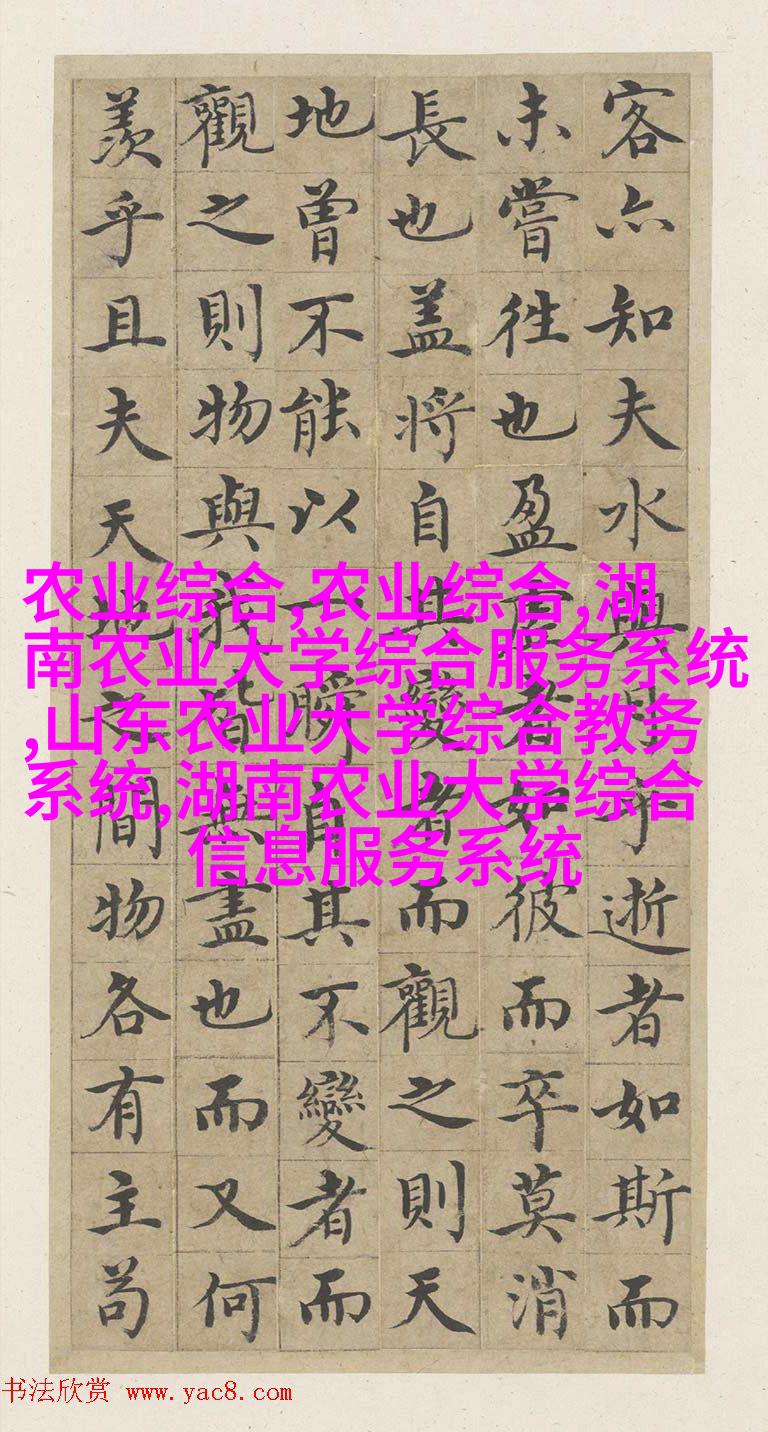 客亦知夫水與月乎逝者如斯而
未嘗往也盈虛者如彼而卒莫消
長也盖将自其變者而觀之則天
地曾不能以一瞬自其不變者而
觀之則物與我皆無盡也而又何
羨乎且夫天地之間物各有主苟
农业综合,农业综合,湖
南农业大学综合服务系统
,山东农业大学综合教务
系统,湖南农业大学综合
信息服务系统
书法欣赏 www.yac8.com